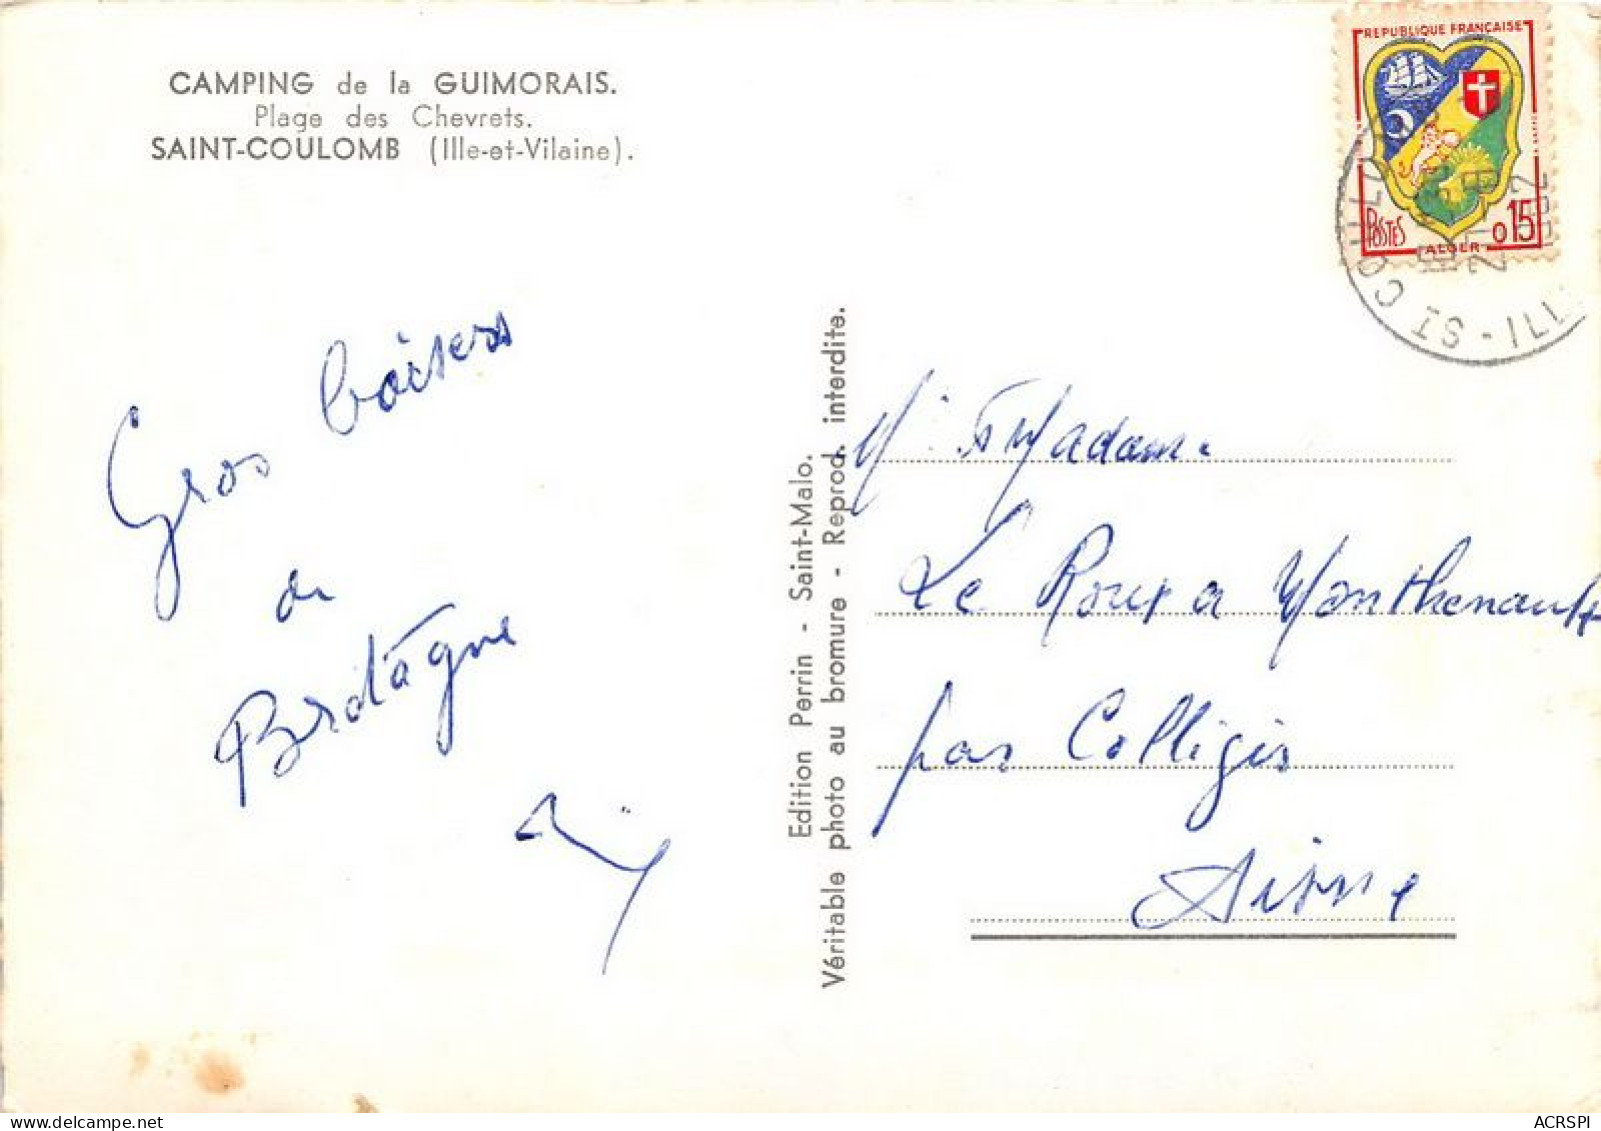 CAMPING de la GUIMORAIS.
Plage des Chevrets.
SAINT-COULOMB (Ille-et-Vilaine).
REPUBLIQUE FRANÇAISE
POSTES
0,15
ALGER
ST COUL
ILL
Gros baisers
de
Bretagne
Edition Perrin - Saint-Malo.
Véritable photo au bromure - Reprod. interdite.
M. et Madame
Le Roux a Monthenault
par Colligis
Aisne
ACRSPI